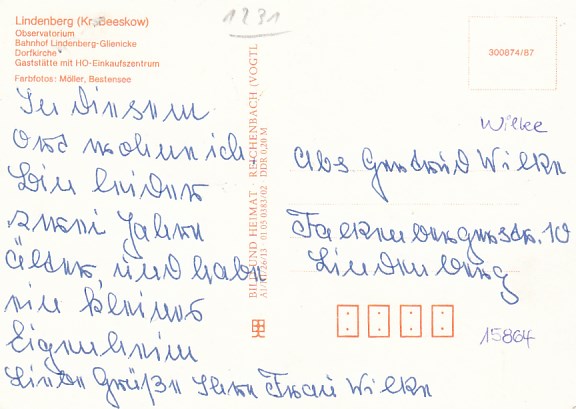 Lindenberg (Kr. Beeskow)
Observatorium
Bahnhof Lindenberg-Glienicke
Dorfkirche
Gaststätte mit HO-Einkaufszentrum
Farbfotos: Möller, Bestensee
In diesem
Ort wohne ich
Bin beider
zwei Jahre
älter, und habe
ein kleines
Eigenheim
Liebe Grüße Ihre Frau Wilke
1231
BILD UND HEIMAT REICHENBACH (VOGTL
A1/ 26/13 01 05 0383/02 DDR 0,20 M
300874/87
Wilke
Abs Gertrud Wilke
Falkenbergerstr. 10
Lindenberg
15864